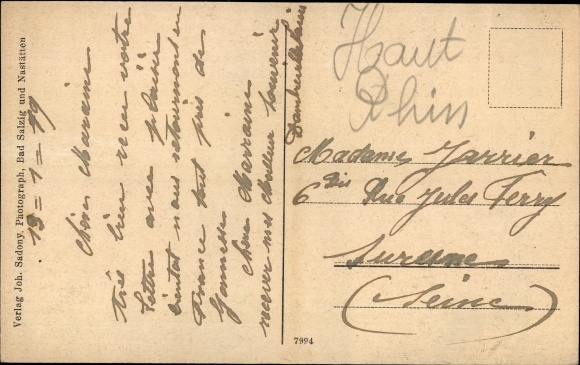 Verlag Joh. Sadony, Photograph, Bad Salzig und Nastätten
13=1=19
Chère Marraine
très bien recu votre
lettre avec plaisir
bientot nous retournont en
France tout pris de
Chère Marraine
recever mes Meilleur souvenir
Haut
Rhin
Madame Jarrier
6 bis Rue Jules Ferry
Suresne
(Seine)
7994